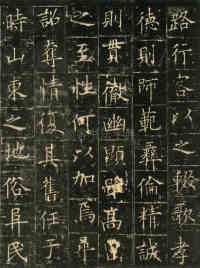 路行客以之輟歌孝
德則師範彝倫精誠
則貫徹幽顯雖高曾
之至性何以加焉尋
詔奪情復其舊任于
時山東之地俗阜民